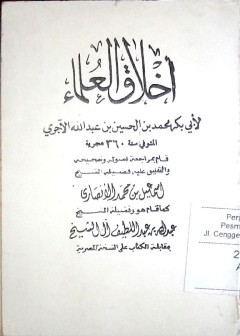 أخلاق العلماء
لأبي بكر محمد بن الحسين بن عبد الله الآجري
المتوفى سنة ٣٦٠ هجرية
قام بمراجعة أصوله وتصحيحه
والتعليق عليه فضيلة الشيخ
إسماعيل بن محمد الأنصاري
كما قام هو وفضيلة الشيخ
عبد الله بن عبد اللطيف آل الشيخ
بمقابلة الكتاب على النسخة المصرية
Per
Pesm
Jl. Cengge
2
A